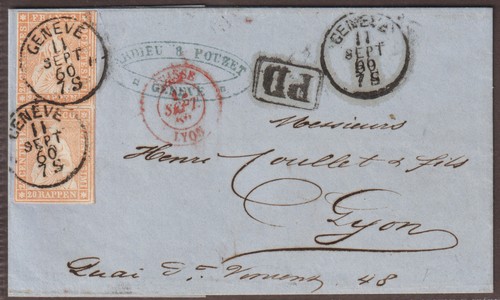 GENÈVE
11
SEPT
60
7S
GENÈVE
11
SEPT
60
7S
20 RAPPEN
& POUZET
GENÈVE
SUISSE
SEPT
LYON
PD
GENÈVE
11
SEPT
60
7S
Messieurs
Henri Coullet & fils
Lyon
Quai St Vincent 48